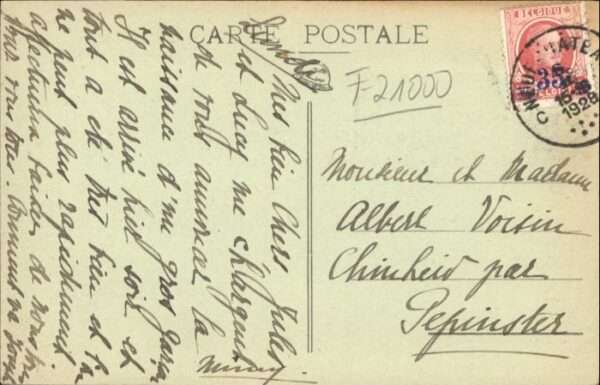 CARTE POSTALE
Lundi
Mes bien Chers Jules
et Lucy me chargent
de vous annoncer la
naissance d'un gros garçon
Il est arrivé hier soir et
tout a été très bien et
ne peut plus rapidement
affectueux baisers de nous
tous vous
F 21000
BELGIQUE
35c
NEUFCHATEAU
1928
Monsieur et Madame
Albert Voisin
Chinheid par
Pepinster